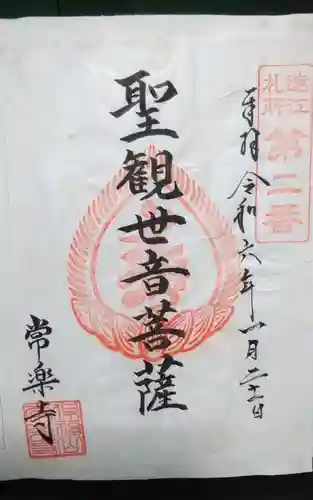 遠江
札所
第二番
奉拝 令和六年八月二十一日
聖観世音菩薩
常楽寺